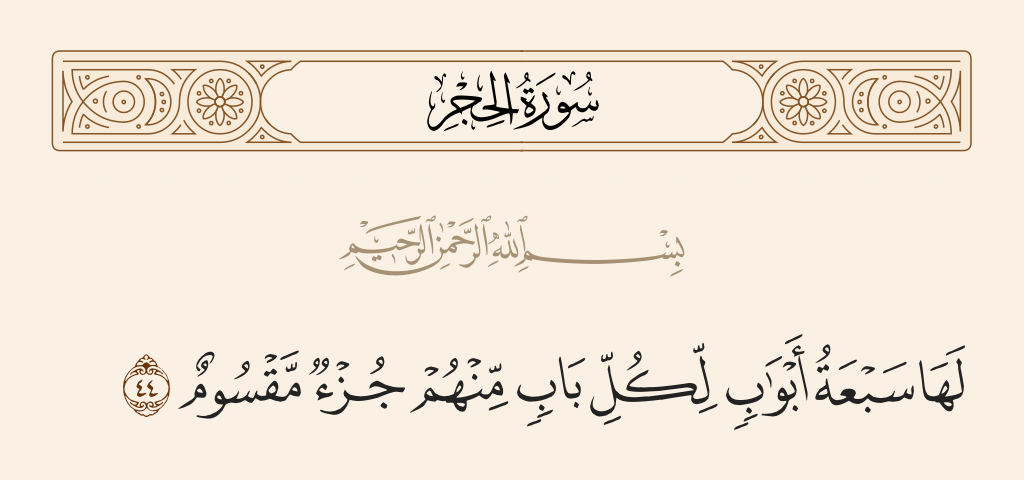 سُورَةُ الحِجْرِ
بِسْمِ ٱللَّهِ ٱلرَّحْمَٰنِ ٱلرَّحِيمِ
لَهَا سَبْعَةُ أَبْوَٰبٍ لِّكُلِّ بَابٍ مِّنْهُمْ جُزْءٌ مَّقْسُومٌ ٤٤